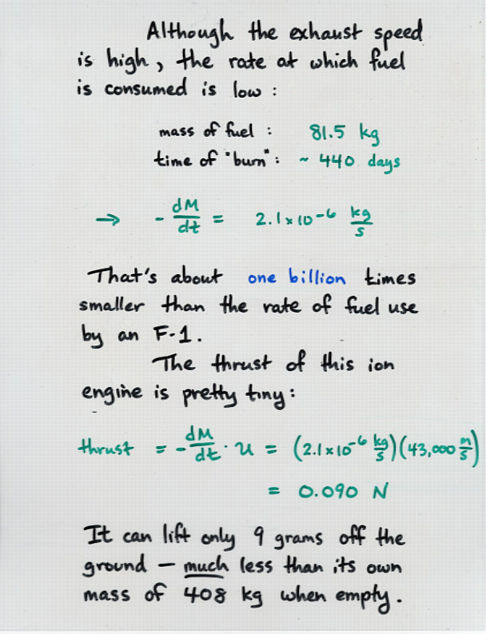 Although the exhaust speed
is high, the rate at which fuel
is consumed is low:
mass of fuel: 81.5 kg
time of "burn": ~ 440 days
→ - dM/dt = 2.1 x 10^-6 kg/s
That's about one billion times
smaller than the rate of fuel use
by an F-1.
The thrust of this ion
engine is pretty tiny:
thrust = - dM/dt · u = (2.1 x 10^-6 kg/s)(43,000 m/s)
= 0.090 N
It can lift only 9 grams off the
ground – much less than its own
mass of 408 kg when empty.